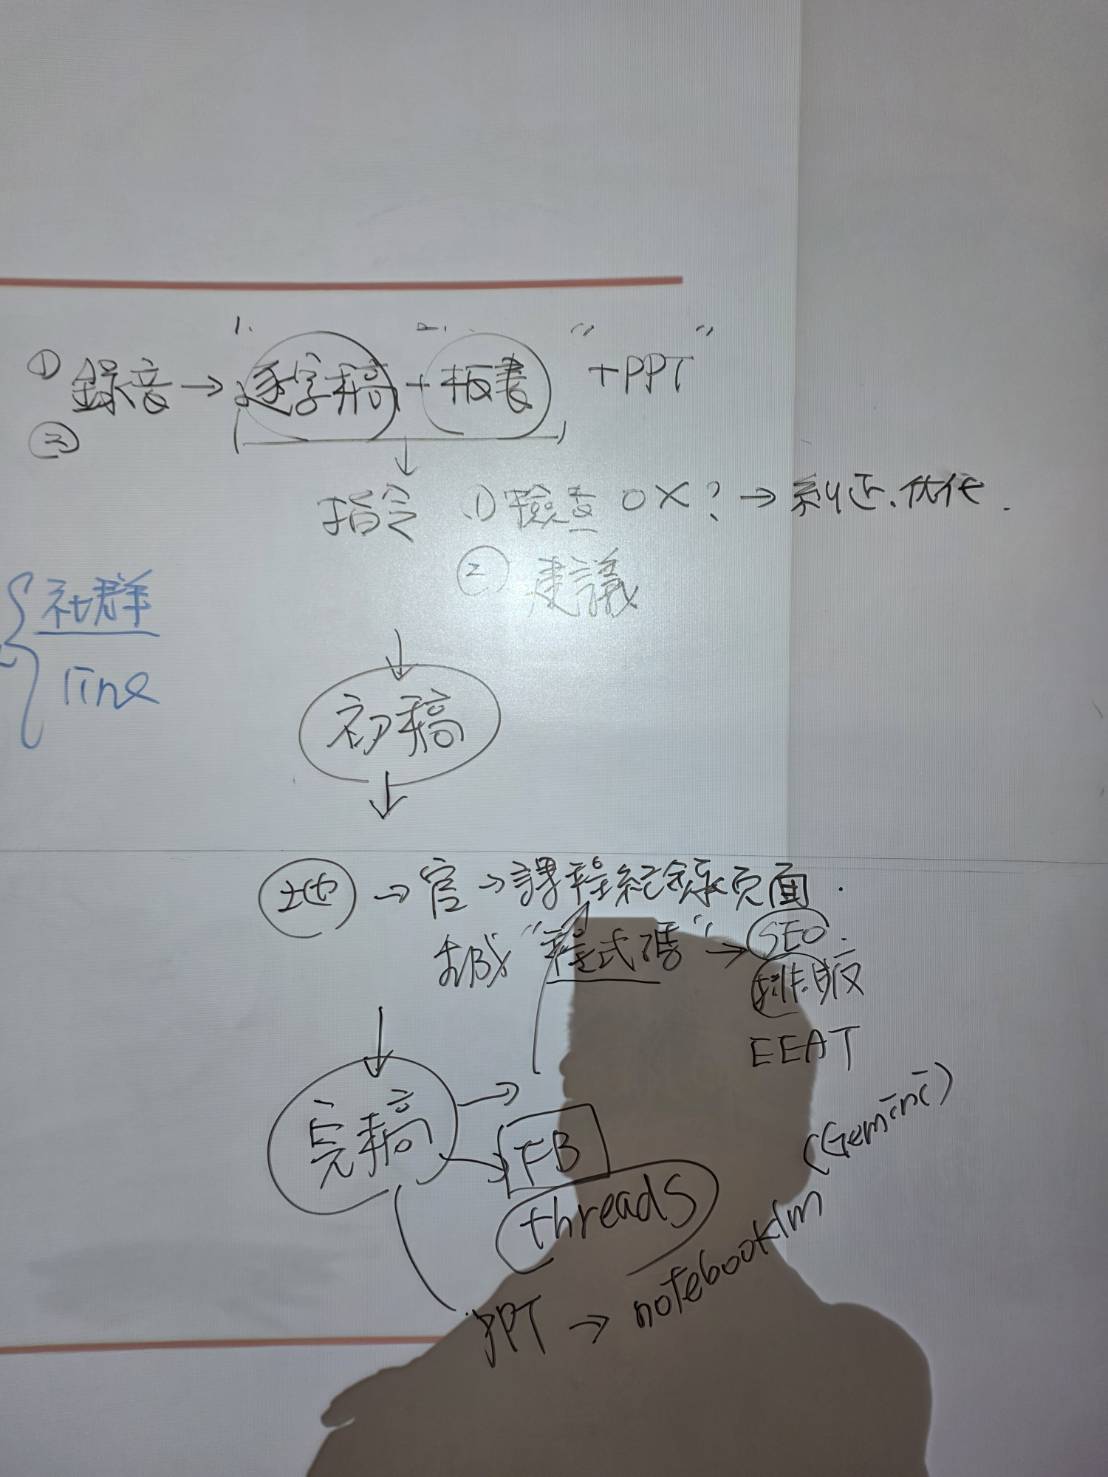 1. 2. " "
① 錄音→逐字稿+板書 +PPT
②
↓
指令 ① 檢查 OX? → 糾正、优化.
② 建議
社群
line
↓
初稿
↓
地 → 官 → 課程紀錄頁面.
"程式碼" → SEO.
排版
EEAT
↓
完稿 →
FB
threads
PPT → notebooklm (Gemini)